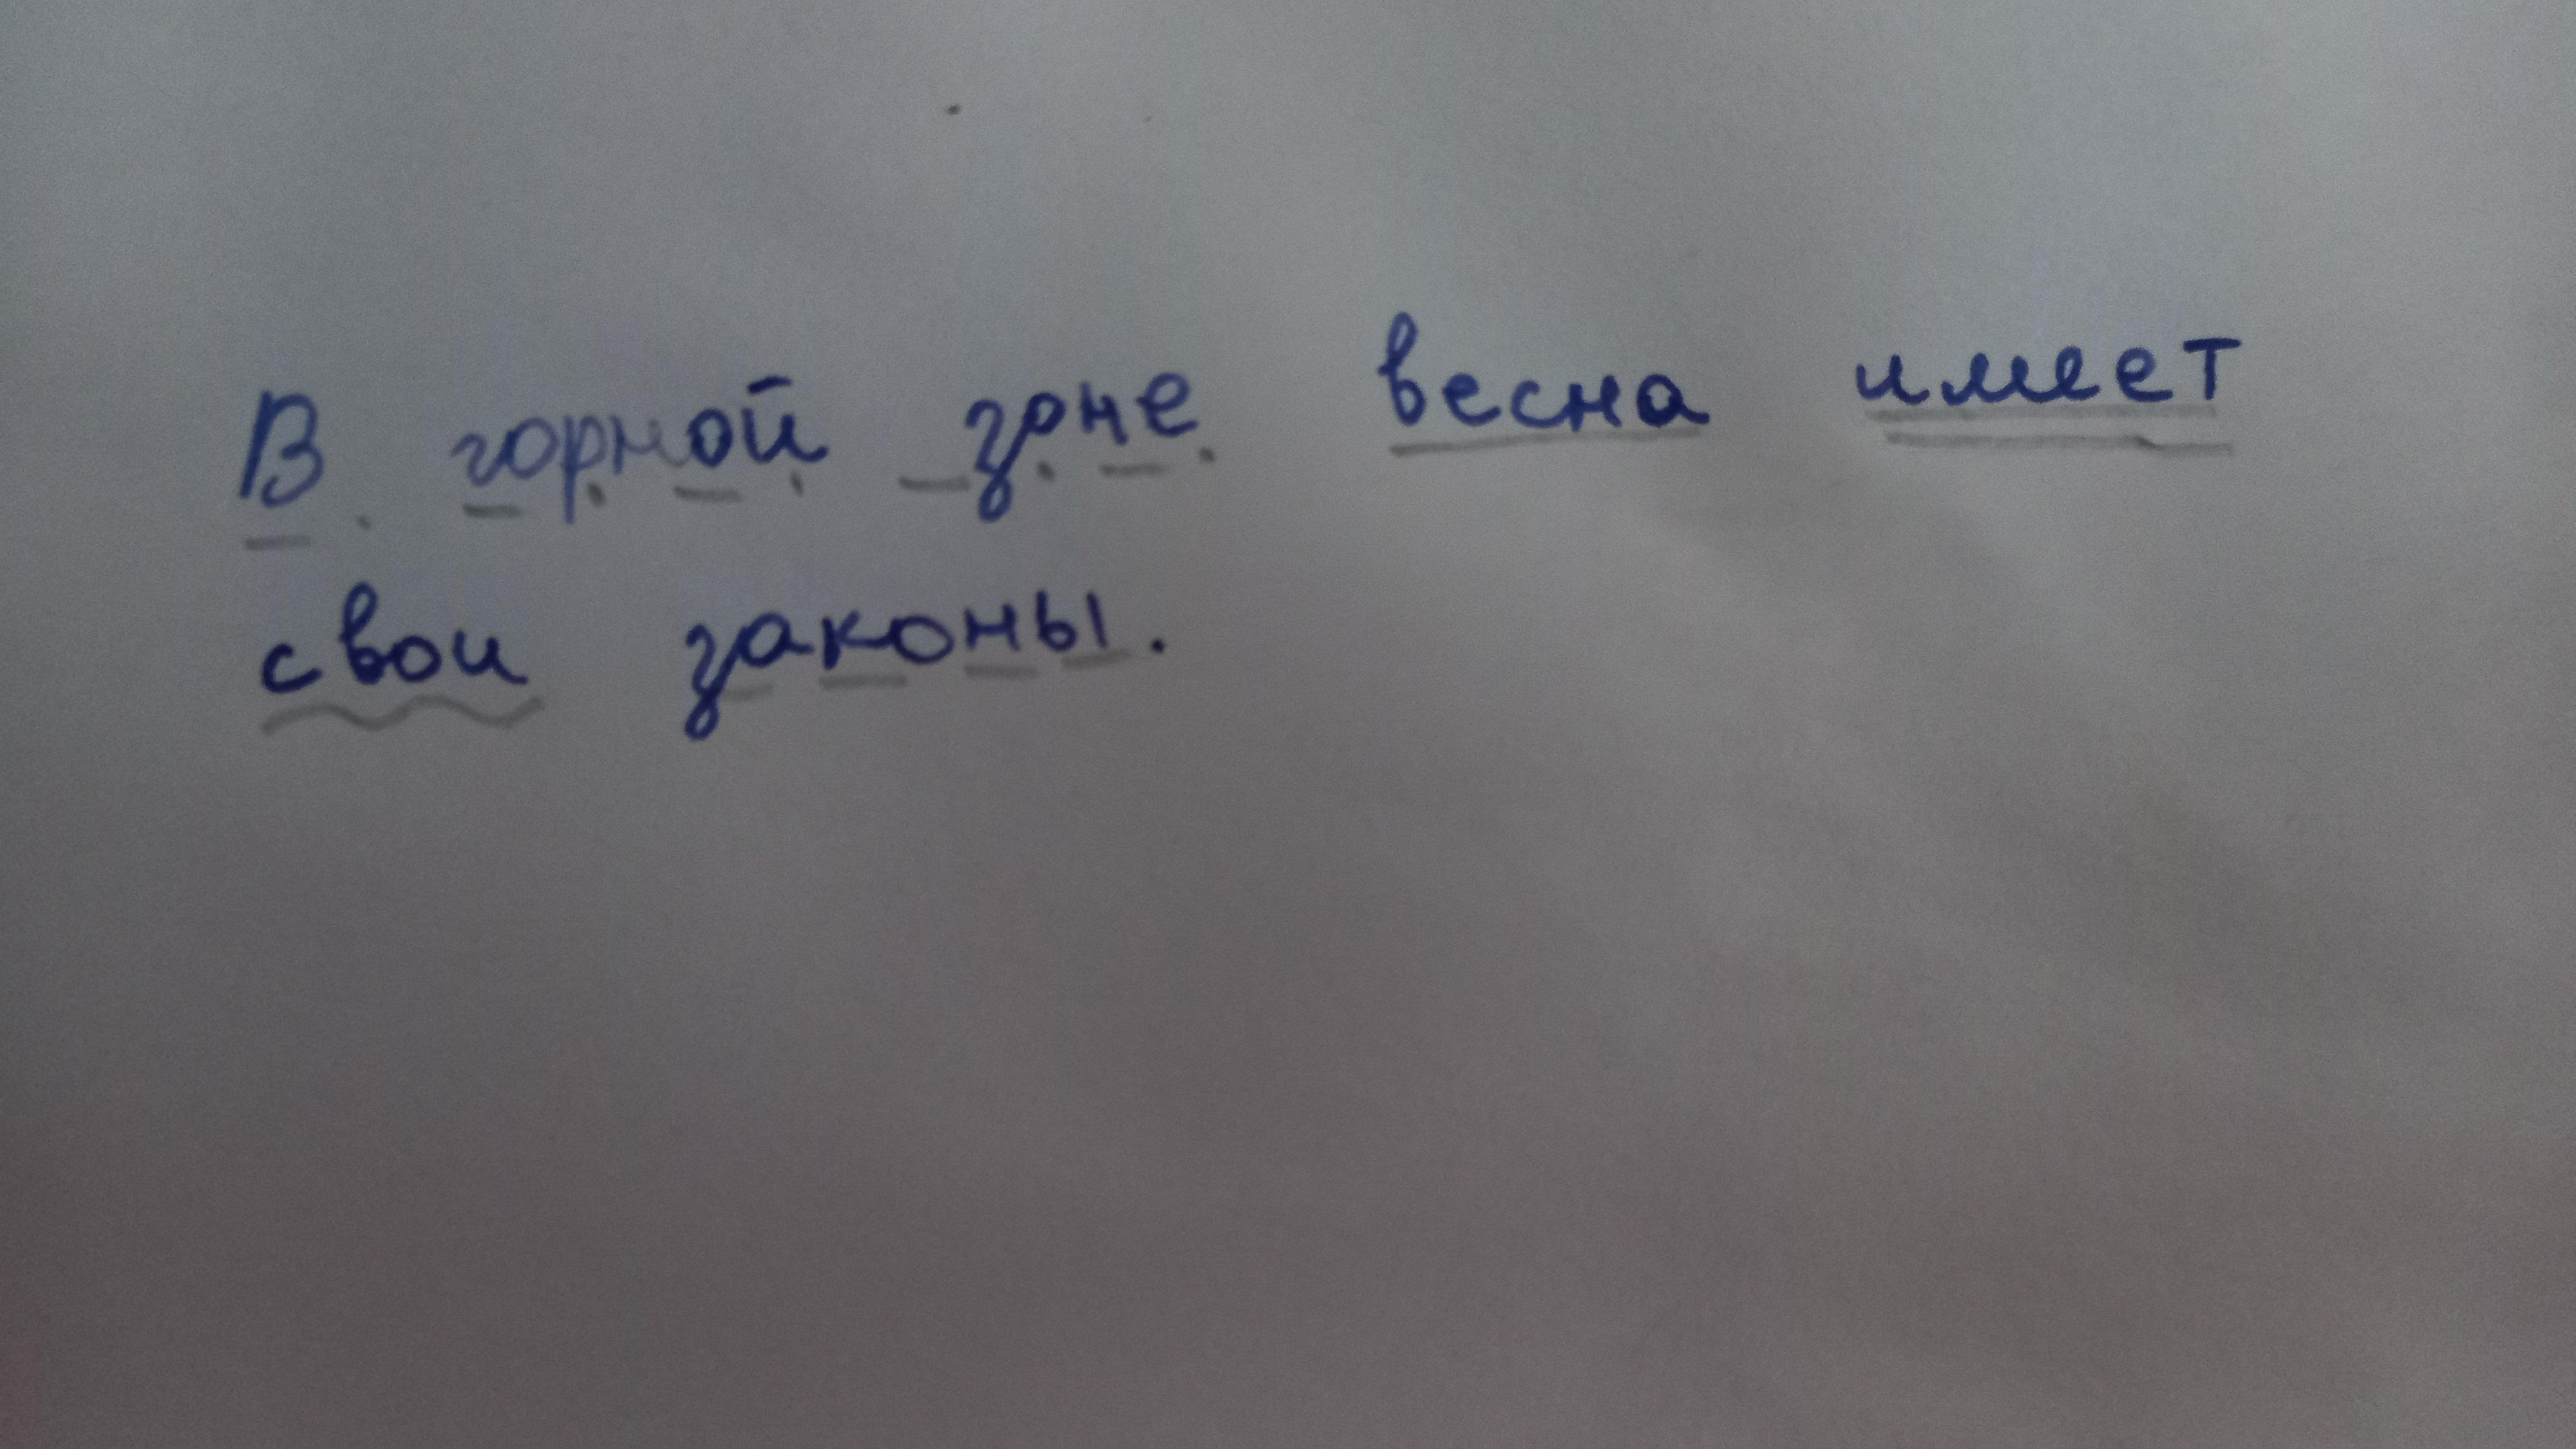 В горной зоне весна имеет
свои законы.